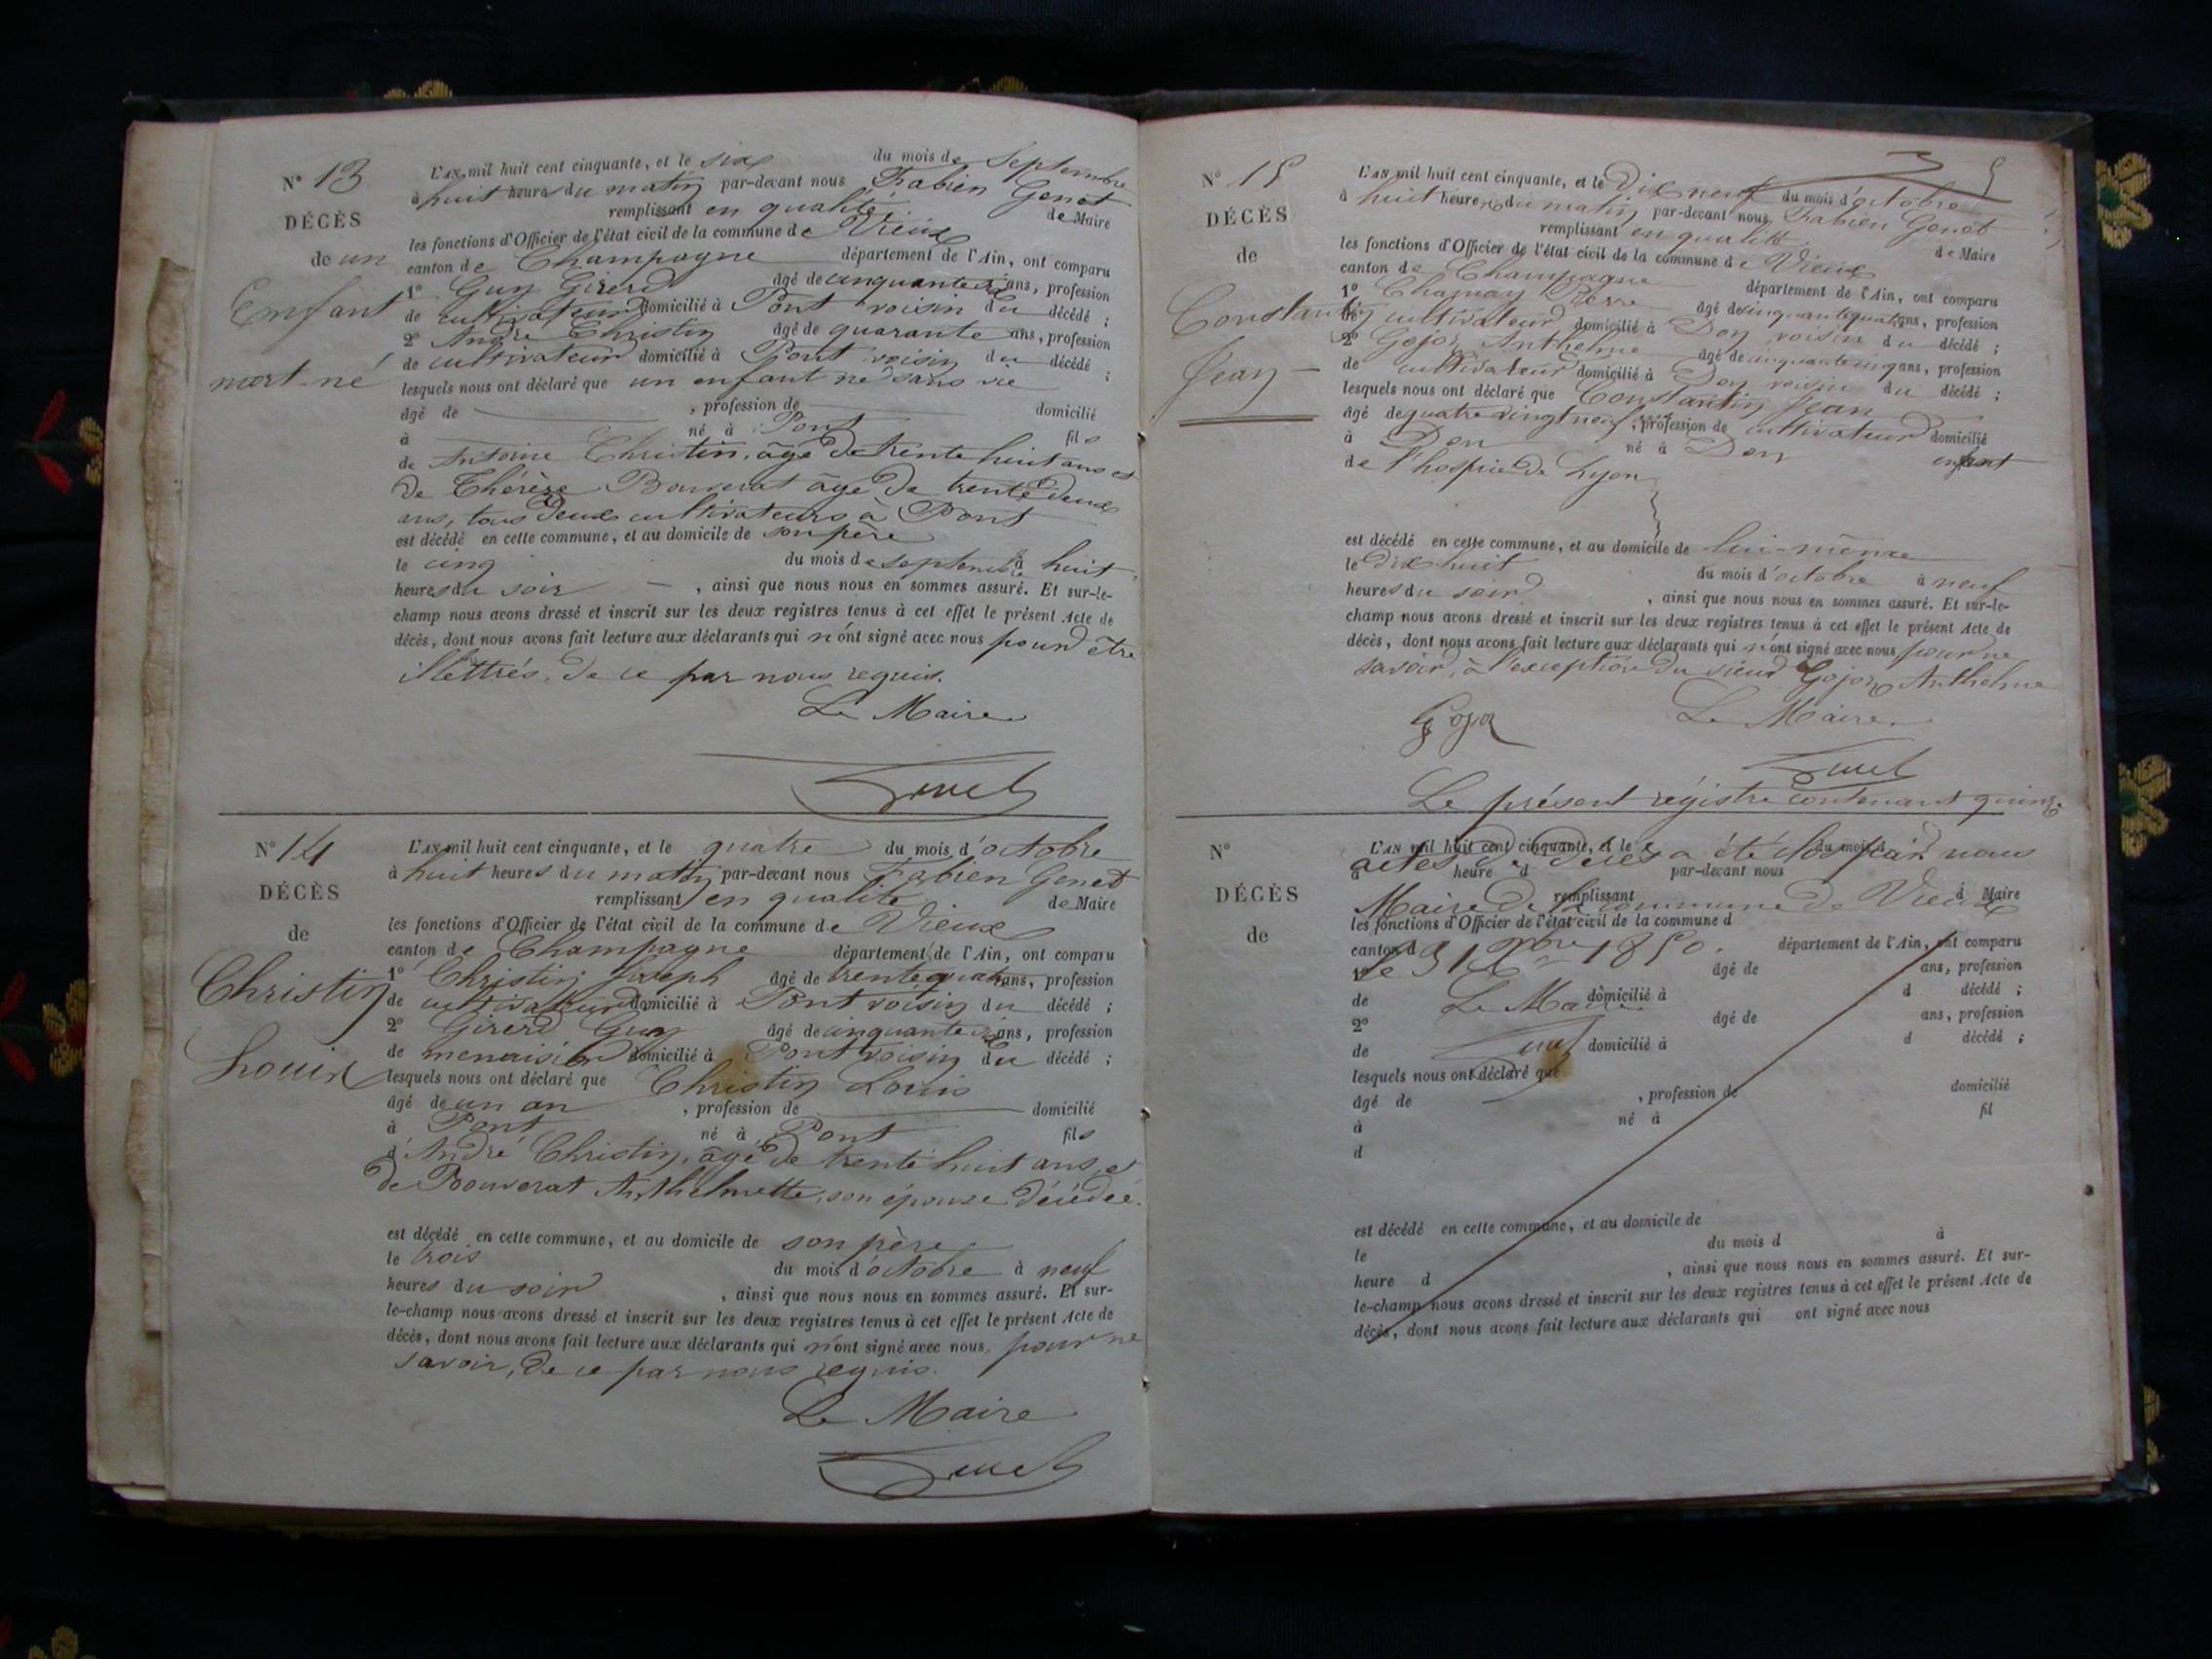 N° 13
DÉCÈS
de un
Enfant
mort-né
L'AN mil huit cent cinquante, et le six du mois de Septembre
à huit heures du matin par-devant nous Fabien Genet
remplissant en qualité de Maire
les fonctions d'Officier de l'état civil de la commune de Vieux
canton de Champagne département de l'Ain, ont comparu
1° Guy Girerd âgé de cinquante ans, profession
de cultivateur domicilié à Pont voisin du décédé ;
2° André Christin âgé de quarante ans, profession
de cultivateur domicilié à Pont voisin du décédé ;
lesquels nous ont déclaré que un enfant né sans vie
âgé de , profession de domicilié
à né à Pont fils
de Antoine Christin, âgé de trente huit ans et
de Thérèse Bouverat âgé de trente deux
ans, tous deux cultivateurs à Pont
est décédé en cette commune, et au domicile de son père
le cinq du mois de septembre à huit
heures du soir , ainsi que nous nous en sommes assuré. Et sur-le-
champ nous avons dressé et inscrit sur les deux registres tenus à cet effet le présent Acte de
décès, dont nous avons fait lecture aux déclarants qui n'ont signé avec nous pour être
illettrés, de ce par nous requis.
Le Maire
Genet
N° 14
DÉCÈS
de
Christin
Louis
L'AN mil huit cent cinquante, et le quatre du mois d'octobre
à huit heures du matin par-devant nous Fabien Genet
remplissant en qualité de Maire
les fonctions d'Officier de l'état civil de la commune de Vieux
canton de Champagne département de l'Ain, ont comparu
1° Christin Joseph âgé de trente quatre ans, profession
de cultivateur domicilié à Pont voisin du décédé ;
2° Girerd Guy âgé de cinquante ans, profession
de menuisier domicilié à Pont voisin du décédé ;
lesquels nous ont déclaré que Christin Louis
âgé de un an , profession de domicilié
à Pont né à Pont fils
d'André Christin, âgé de trente huit ans, et
de Bouverat Anthelmette, son épouse décédée.
est décédé en cette commune, et au domicile de son père
le trois du mois d'octobre à neuf
heures du soir , ainsi que nous nous en sommes assuré. Et sur-
le-champ nous avons dressé et inscrit sur les deux registres tenus à cet effet le présent Acte de
décès, dont nous avons fait lecture aux déclarants qui n'ont signé avec nous, pour ne
savoir, de ce par nous requis.
Le Maire
Genet
N° 15
DÉCÈS
de
Constantin
Jean
L'AN mil huit cent cinquante, et le Dix neuf du mois d'octobre
à huit heures du matin par-devant nous Fabien Genet
remplissant en qualité de Maire
les fonctions d'Officier de l'état civil de la commune de Vieux
canton de Champagne département de l'Ain, ont comparu
1° Pierre âgé de cinquante quatre ans, profession
de cultivateur domicilié à Don voisin du décédé ;
2° Gojon Anthelme âgé de cinquante cinq ans, profession
de cultivateur domicilié à Don voisin du décédé ;
lesquels nous ont déclaré que Constantin Jean
âgé de quatre vingt neuf , profession de cultivateur domicilié
à Don né à Don enfant
de l'hospice de Lyon
est décédé en cette commune, et au domicile de lui-même
le Dix huit du mois d'octobre à neuf
heures du soir , ainsi que nous nous en sommes assuré. Et sur-le-
champ nous avons dressé et inscrit sur les deux registres tenus à cet effet le présent Acte de
décès, dont nous avons fait lecture aux déclarants qui n'ont signé avec nous pour ne
savoir, à l'exception du sieur Gojon Anthelme
Gojon Le Maire
Genet
Le présent régistre contenant quinze
actes de décès a été clos par nous
Maire de la commune de Vieux
le 31 Xbre 1850.
Le Maire
Genet
N°
DÉCÈS
de
L'AN mil huit cent cinquante, et le du mois d
à heure d par-devant nous
remplissant d Maire
les fonctions d'Officier de l'état civil de la commune d
canton d département de l'Ain, ont comparu
1° âgé de ans, profession
de domicilié à d décédé ;
2° âgé de ans, profession
de domicilié à d décédé ;
lesquels nous ont déclaré que
âgé de , profession de domicilié
à né à fil
d
est décédé en cette commune, et au domicile de
le du mois d à
heure d , ainsi que nous nous en sommes assuré. Et sur-
le-champ nous avons dressé et inscrit sur les deux registres tenus à cet effet le présent Acte de
décès, dont nous avons fait lecture aux déclarants qui ont signé avec nous